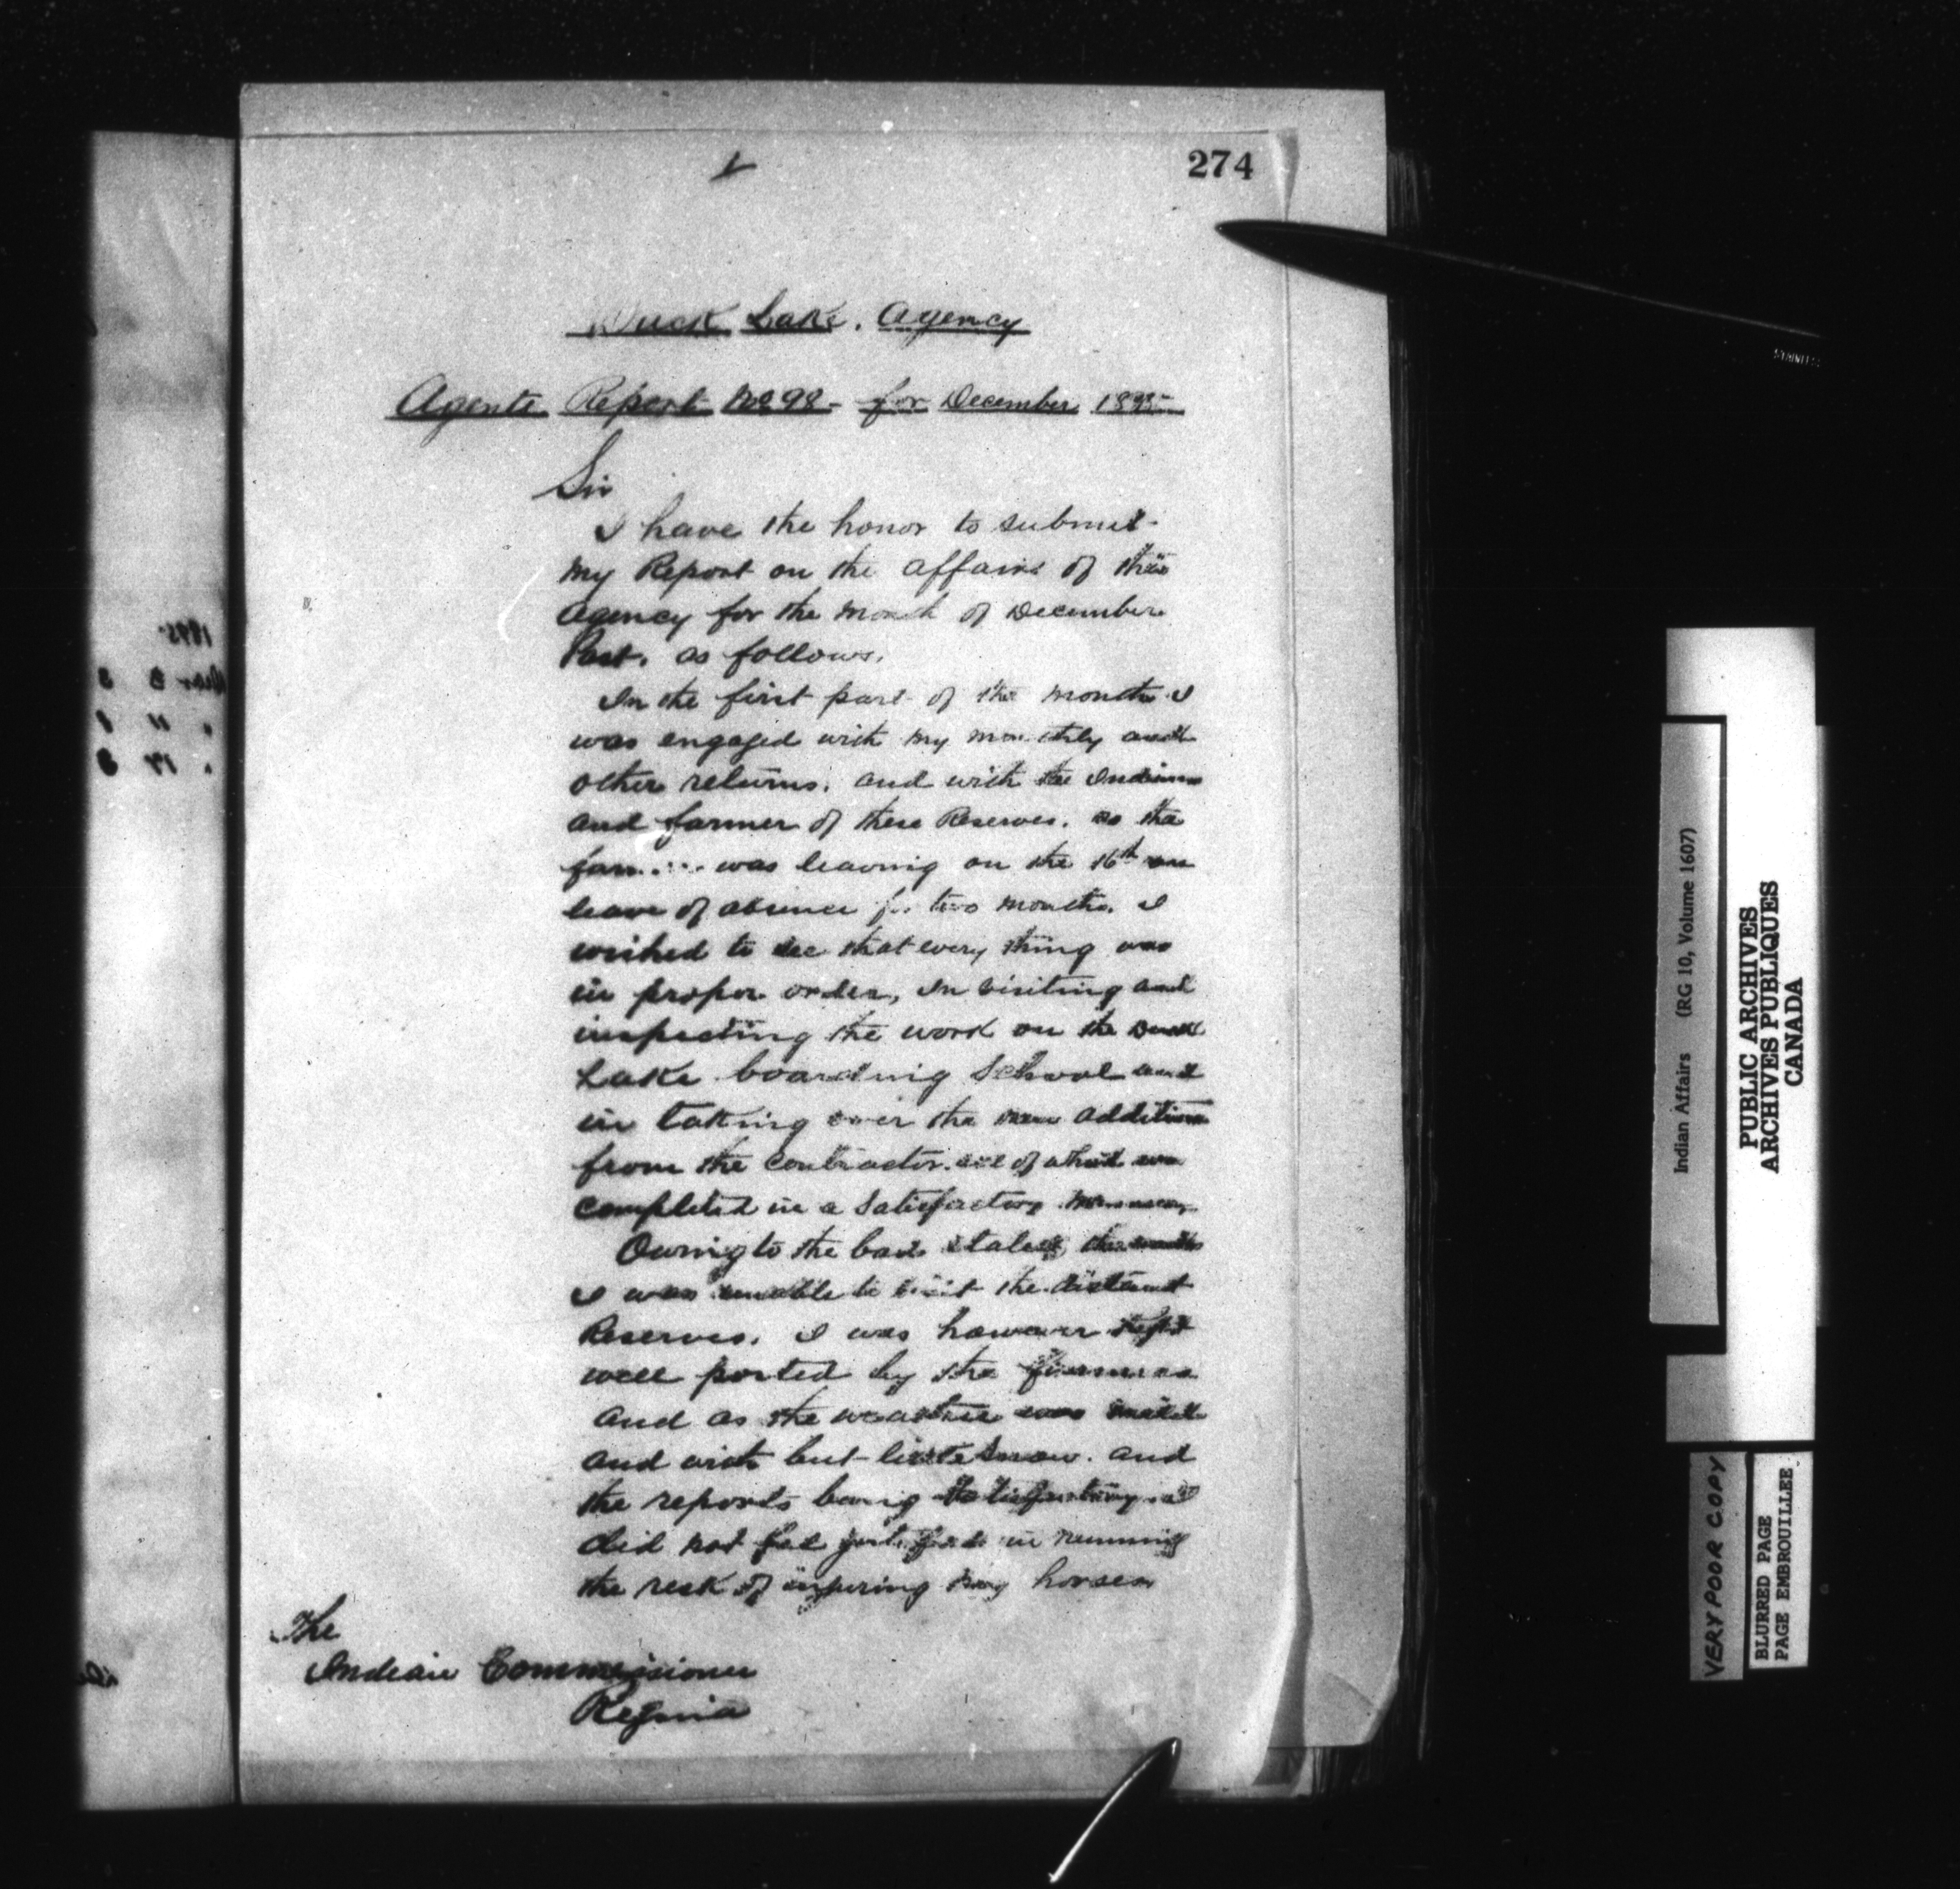 274
Duck Lake. Agency
Agents Report No 98 - for December 1895
Sir
I have the honor to submit
my Report on the affairs of this
Agency for the month of December
Past. as follows.
In the first part of the month I
was engaged with my monthly and
other returns. and with the Indians
and farmer of these Reserves. as the
was leaving on the 16th on
leave of absence for two months. I
wished to see that every thing was
in proper order, In visiting and
inspecting the work on the Duck
Lake boarding School and
in taking over the new addition
from the Contractor. all of which was
completed in a Satisfactory manner
Owing to the bad state of the
I was unable to visit the distant
Reserves. I was however
well ported by the farmers
and as the weather was mild
and with but little snow. and
the reports being Satisfactory I
did not feel justified in running
the resk of injuring my horses
The
Indian Commissioner
Regina
1895
STAINLESS
Indian Affairs (RG 10, Volume 1607)
PUBLIC ARCHIVES
ARCHIVES PUBLIQUES
CANADA
VERY POOR COPY
BLURRED PAGE
PAGE EMBROUILLEE